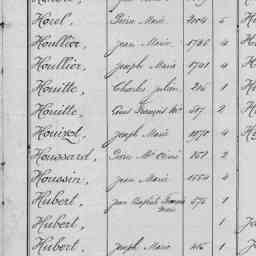 Horel, Pierre Marie 2104 5
Houllier, Jean Marie 1746 4
Houllier, Joseph Marie 1741 4
Houitte, Charles Julien 216 1
Houitte, Louis François Mie 597 2
Houizot, Joseph Marie 1170 4
Houssard, Pierre Me 151 2
Houssin, Jean Marie 1554 4
Hubert, Jean Baptiste François Marie 576 1
Hubert, 1
Hubert, Joseph Marie 416 1